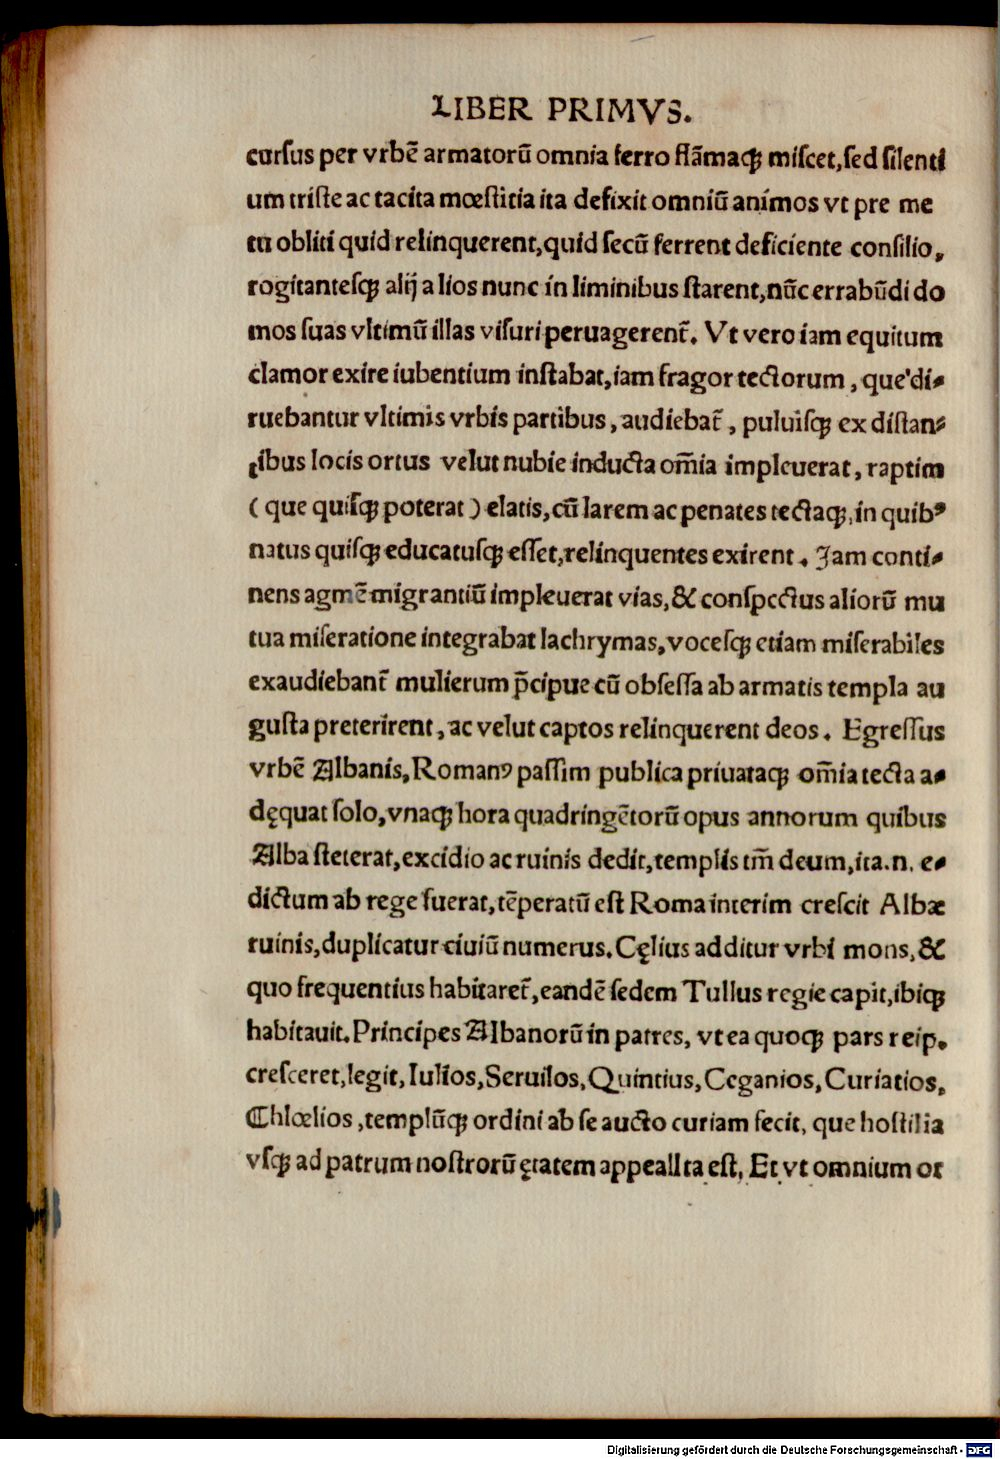 LIBER PRIMVS.
cursus per vrbẽ armatorũ omnia ferro flãmaqꝫ miscet, sed silenti
um triste ac tacita mœstitia ita defixit omniũ animos vt pre me
tu obliti quid relinquerent, quid secũ ferrent deficiente consilio,
rogitantesqꝫ alij alios nunc in liminibus starent, nũc errabũdi do
mos suas vltimũ illas visuri peruagerent̃. Vt vero iam equitum
clamor exire iubentium instabat, iam fragor tectorum, que di⸗
ruebantur vltimis vrbis partibus, audiebat̃, puluisqꝫ ex distan⸗
tibus locis ortus velut nubie inducta om̃ia impleuerat, raptim
(que quisqꝫ poterat) elatis, cũ larem ac penates tectaqꝫ, in quibꝰ
natus quisqꝫ educatusqꝫ esset, relinquentes exirent. Iam conti⸗
nens agmẽ migrantiũ impleuerat vias, & conspectus aliorũ mu
tua miseratione integrabat lachrymas, vocesqꝫ etiam miserabiles
exaudiebant̃ mulierum p̃cipue cũ obsessa ab armatis templa au
gusta preterirent, ac velut captos relinquerent deos. Egressus
vrbẽ Albanis, Romanꝰ passim publica priuataqꝫ om̃ia tecta a⸗
dęquat solo, vnaqꝫ hora quadringẽtorũ opus annorum quibus
Alba steterat, excidio ac ruinis dedit, templis tm̃ deum, ita .n. e⸗
dictum ab rege fuerat, tẽperatũ est Roma interim crescit Albæ
ruinis, duplicatur ciuiũ numerus. Cęlius additur vrbi mons, &
quo frequentius habitaret̃, eandẽ sedem Tullus regie capit, ibiqꝫ
habitauit. Principes Albanorũ in patres, vt ea quoqꝫ pars reip.
cresceret, legit, Iulios, Seruilos, Quintius, Ceganios, Curiatios,
Chlœlios, templũqꝫ ordini ab se aucto curiam fecit, que hostilia
vsqꝫ ad patrum nostrorũ ętatem appeallta est, Et vt omnium or
Digitalisierung gefördert durch die Deutsche Forschungsgemeinschaft - DFG